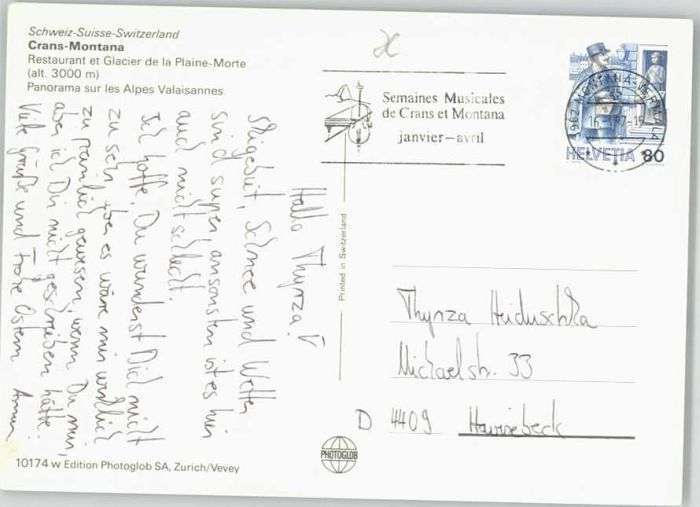 Schweiz-Suisse-Switzerland
Crans-Montana
Restaurant et Glacier de la Plaine-Morte
(alt. 3000 m)
Panorama sur les Alpes Valaisannes
Semaines Musicales
de Crans et Montana
janvier – avril
3962 MONTANA-VERMALA
HELVETIA 80
Hallo Thynza!
Skigebiet, Schnee und Wetter
sind super, ansonsten ist es hier
auch nicht schlecht.
Ich hoffe, Du wunderst Dich nicht
zu sehr, aber es wäre mir wirklich
zu peinlich gewesen, wenn Du mir,
aber ich Dir nicht geschrieben hätte.
Viele Grüße und frohe Ostern
Printed in Switzerland
Thynza Heiduschka
Michaelstr. 33
D 4409 Havixbeck
PHOTOGLOB
10174 w Edition Photoglob SA, Zurich/Vevey